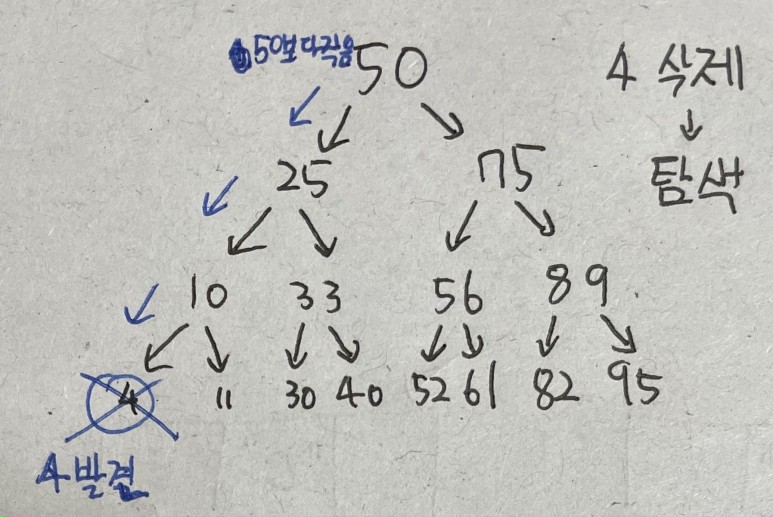 50보다작음
50
4 삭제
↓
탐색
25 75
10 33 56 89
4 11 30 40 52 61 82 95
4발견